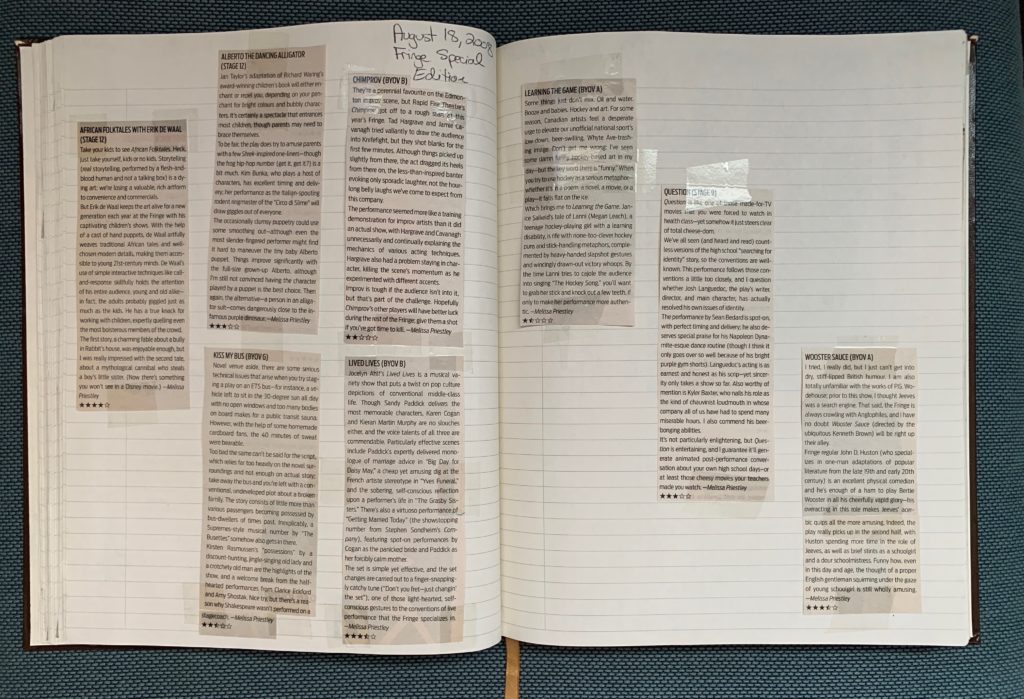 August 18, 2008
Fringe Special
Edition
AFRICAN FOLKTALES WITH ERIK DE WAAL
(STAGE 12)
Take your kids to see African Folktales. Heck,
just take yourself, kids or no kids. Storytelling
(real storytelling, performed by a flesh-and-
blood human and not a talking box) is a dy-
ing art; we're losing a valuable, rich artform
to convenience and commercials.
But Erik de Waal keeps the art alive for a new
generation each year at the Fringe with his
captivating children's shows. With the help
of a cast of hand puppets, de Waal artfully
weaves traditional African tales and well-
chosen modern details, making them acces-
sible to young 21st-century minds. De Waal's
use of simple interactive techniques like call-
and-response skillfully holds the attention
of his entire audience, young and old alike—
in fact, the adults probably giggled just as
much as the kids. He has a true knack for
working with children, expertly quelling even
the most boisterous members of the crowd.
The first story, a charming fable about a bully
in Rabbit's house, was enjoyable enough, but
I was really impressed with the second tale,
about a mythological cannibal who steals
a boy's little sister. (Now there's something
you won't see in a Disney movie.) —Melissa
Priestley
★★★★☆
ALBERTO THE DANCING ALLIGATOR
(STAGE 12)
Jan Taylor's adaptation of Richard Waring's
award-winning children's book will either en-
chant or repel you, depending on your pen-
chant for bright colours and bubbly charac-
ters. It's certainly a spectacle that entrances
most children, though parents may need to
brace themselves.
To be fair, the play does try to amuse parents
with a few Shrek-inspired one-liners—though
the frog hip-hop number (get it, get it?) is a
bit much. Kim Bunka, who plays a host of
characters, has excellent timing and deliv-
ery; her performance as the Italian-spouting
rodent ringmaster of the "Circo di Slime" will
draw giggles out of everyone.
The occasionally clumsy puppetry could use
some smoothing out—although even the
most slender-fingered performer might find
it hard to maneuver the tiny baby Alberto
puppet. Things improve significantly with
the full-size grown-up Alberto, although
I'm still not convinced having the character
played by a puppet is the best choice. Then
again, the alternative—a person in an alliga-
tor suit—comes dangerously close to the in-
famous purple dinosaur. —Melissa Priestley
★★★☆☆
KISS MY BUS (BYOV G)
Novel venue aside, there are some serious
technical issues that arise when you try stag-
ing a play on an ETS bus—for instance, a ve-
hicle left to sit in the 30-degree sun all day
with no open windows and too many bodies
on board makes for a public transit sauna.
However, with the help of some homemade
cardboard fans, the 40 minutes of sweat
were bearable.
Too bad the same can't be said for the script,
which relies far too heavily on the novel sur-
roundings and not enough on actual story;
take away the bus and you're left with a con-
ventional, undeveloped plot about a broken
family. The story consists of little more than
various passengers becoming possessed by
bus-dwellers of times past. Inexplicably, a
Supremes-style musical number by "The
Busettes" somehow also gets in there.
Kirsten Rasmussen's "possessions" by a
discount-hunting, jingle-singing old lady and
a crotchety old man are the highlights of the
show, and a welcome break from the half-
hearted performances from Clarice Eckford
and Amy Shostak. Nice try, but there's a rea-
son why Shakespeare wasn't performed on a
stagecoach. —Melissa Priestley
CHIMPROV (BYOV B)
They're a perennial favourite on the Edmon-
ton improv scene, but Rapid Fire Theatre's
Chimprov got off to a rough start at this
year's Fringe. Tad Hargrave and Jamie Ca-
vanagh tried valiantly to draw the audience
into Knifefight, but they shot blanks for the
first few minutes. Although things picked up
slightly from there, the act dragged its heels
from there on, the less-than-inspired banter
evoking only sporadic laughter, not the hour-
long belly laughs we've come to expect from
this company.
The performance seemed more like a training
demonstration for improv artists than it did
an actual show, with Hargrave and Cavanagh
unnecessarily and continually explaining the
mechanics of various acting techniques.
Hargrave also had a problem staying in char-
acter, killing the scene's momentum as he
experimented with different accents.
Improv is tough if the audience isn't into it,
but that's part of the challenge. Hopefully
Chimprov's other players will have better luck
during the rest of the Fringe; give them a shot
if you've got time to kill. —Melissa Priestley
★★☆☆☆
LIVED LIVES (BYOV B)
Jocelyn Ahlf's Lived Lives is a musical va-
riety show that puts a twist on pop culture
depictions of conventional middle-class
life. Though Sandy Paddick delivers the
most memorable characters, Karen Cogan
and Kieran Martin Murphy are no slouches
either, and the voice talents of all three are
commendable. Particularly effective scenes
include Paddick's expertly delivered mono-
logue of marriage advice in "Big Day for
Daisy May," a cheap yet amusing dig at the
French artiste stereotype in "Yves Funeral,"
and the sobering, self-conscious reflection
upon a performer's life in "The Grasby Sis-
ters." There's also a virtuoso performance of
"Getting Married Today" (the showstopping
number from Stephen Sondheim's Com-
pany), featuring spot-on performances by
Cogan as the panicked bride and Paddick as
her forcibly calm mother.
The set is simple yet effective, and the set
changes are carried out to a finger-snapping-
ly catchy tune ("Don't you fret—just changin'
the set"), one of those light-hearted, self-
conscious gestures to the conventions of live
performance that the Fringe specializes in.
—Melissa Priestley
LEARNING THE GAME (BYOV A)
Some things just don't mix. Oil and water.
Booze and babies. Hockey and art. For some
reason, Canadian artists feel a desperate
urge to elevate our unofficial national sport's
low down, beer-swilling, Whyte Ave-trash-
ing image. Don't get me wrong: I've seen
some damn funny hockey-based art in my
day—but the key word there is "funny." When
you try to use hockey as a serious metaphor—
whether it's in a poem, a novel, a movie, or a
play—it falls flat on the ice.
Which brings me to Learning the Game. Jan-
ice Salveid's tale of Lanni (Megan Leach), a
teenage hockey-playing girl with a learning
disability, is rife with none-too-clever hockey
puns and stick-handling metaphors, comple-
mented by heavy-handed slapshot gestures
and wincingly drawn-out victory whoops. By
the time Lanni tries to cajole the audience
into singing "The Hockey Song," you'll want
to grab her stick and knock out a few teeth, if
only to make her performance more authen-
tic. —Melissa Priestley
QUESTION (STAGE 9)
Question is like one of those made-for-TV
movies that you were forced to watch in
health class—yet somehow it just steers clear
of total cheese-dom.
We've all seen (and heard and read) count-
less versions of the high school "searching for
identity" story, so the conventions are well-
known. This performance follows those con-
ventions a little too closely, and I question
whether Josh Languedoc, the play's writer,
director, and main character, has actually
resolved his own issues of identity.
The performance by Sean Bedard is spot-on,
with perfect timing and delivery; he also de-
serves special praise for his Napoleon Dyna-
mite-esque dance routine (though I think it
only goes over so well because of his bright
purple gym shorts). Languedoc's acting is as
earnest and honest as his scrip—yet sincer-
ity only takes a show so far. Also worthy of
mention is Kyler Baxter, who nails his role as
the kind of chauvinist loudmouth in whose
company all of us have had to spend many
miserable hours. I also commend his beer-
bonging abilities.
It's not particularly enlightening, but Ques-
tion is entertaining, and I guarantee it'll gen-
erate animated post-performance conver-
sation about your own high school days—or
at least those cheesy movies your teachers
made you watch. —Melissa Priestley
★★★☆☆
WOOSTER SAUCE (BYOV A)
I tried, I really did, but I just can't get into
dry, stiff-lipped British humour. I am also
totally unfamiliar with the works of P.G. Wo-
dehouse; prior to this show, I thought Jeeves
was a search engine. That said, the Fringe is
always crowling with Anglophiles, and I have
no doubt Wooster Sauce (directed by the
ubiquitous Kenneth Brown) will be right up
their alley.
Fringe regular John D. Huston (who special-
izes in one-man adaptations of popular
literature from the late 19th and early 20th
century) is an excellent physical comedian
and he's enough of a ham to play Bertie
Wooster in all his cheerfully vapid glory—his
overacting in this role makes Jeeves' acer-
bic quips all the more amusing. Indeed, the
play really picks up in the second half, with
Huston spending more time in the role of
Jeeves, as well as brief stints as a schoolgirl
and a dour schoolmistress. Funny how, even
in this day and age, the thought of a proper
English gentleman squirming under the gaze
of young schoolgirl is still wholly amusing.
—Melissa Priestley